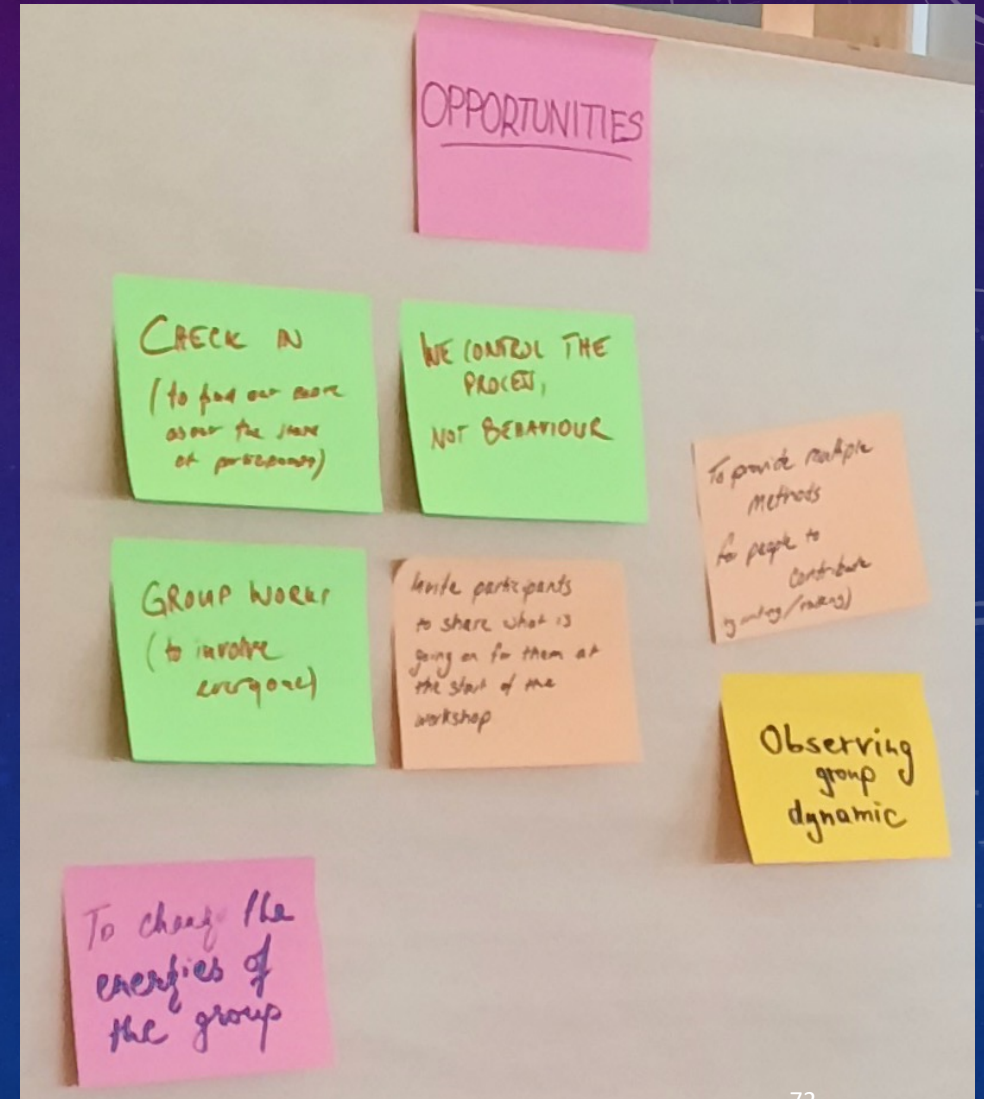 OPPORTUNITIES
CHECK IN
(to find out more
about the state
of participants)
WE CONTROL THE
PROCESS,
NOT BEHAVIOUR
To provide multiple
methods
for people to
contribute
GROUP WORKS
(to involve
everyone)
Invite participants
to share what is
going on for them at
the start of the
workshop
Observing
group
dynamic
To change the
energies of
the group